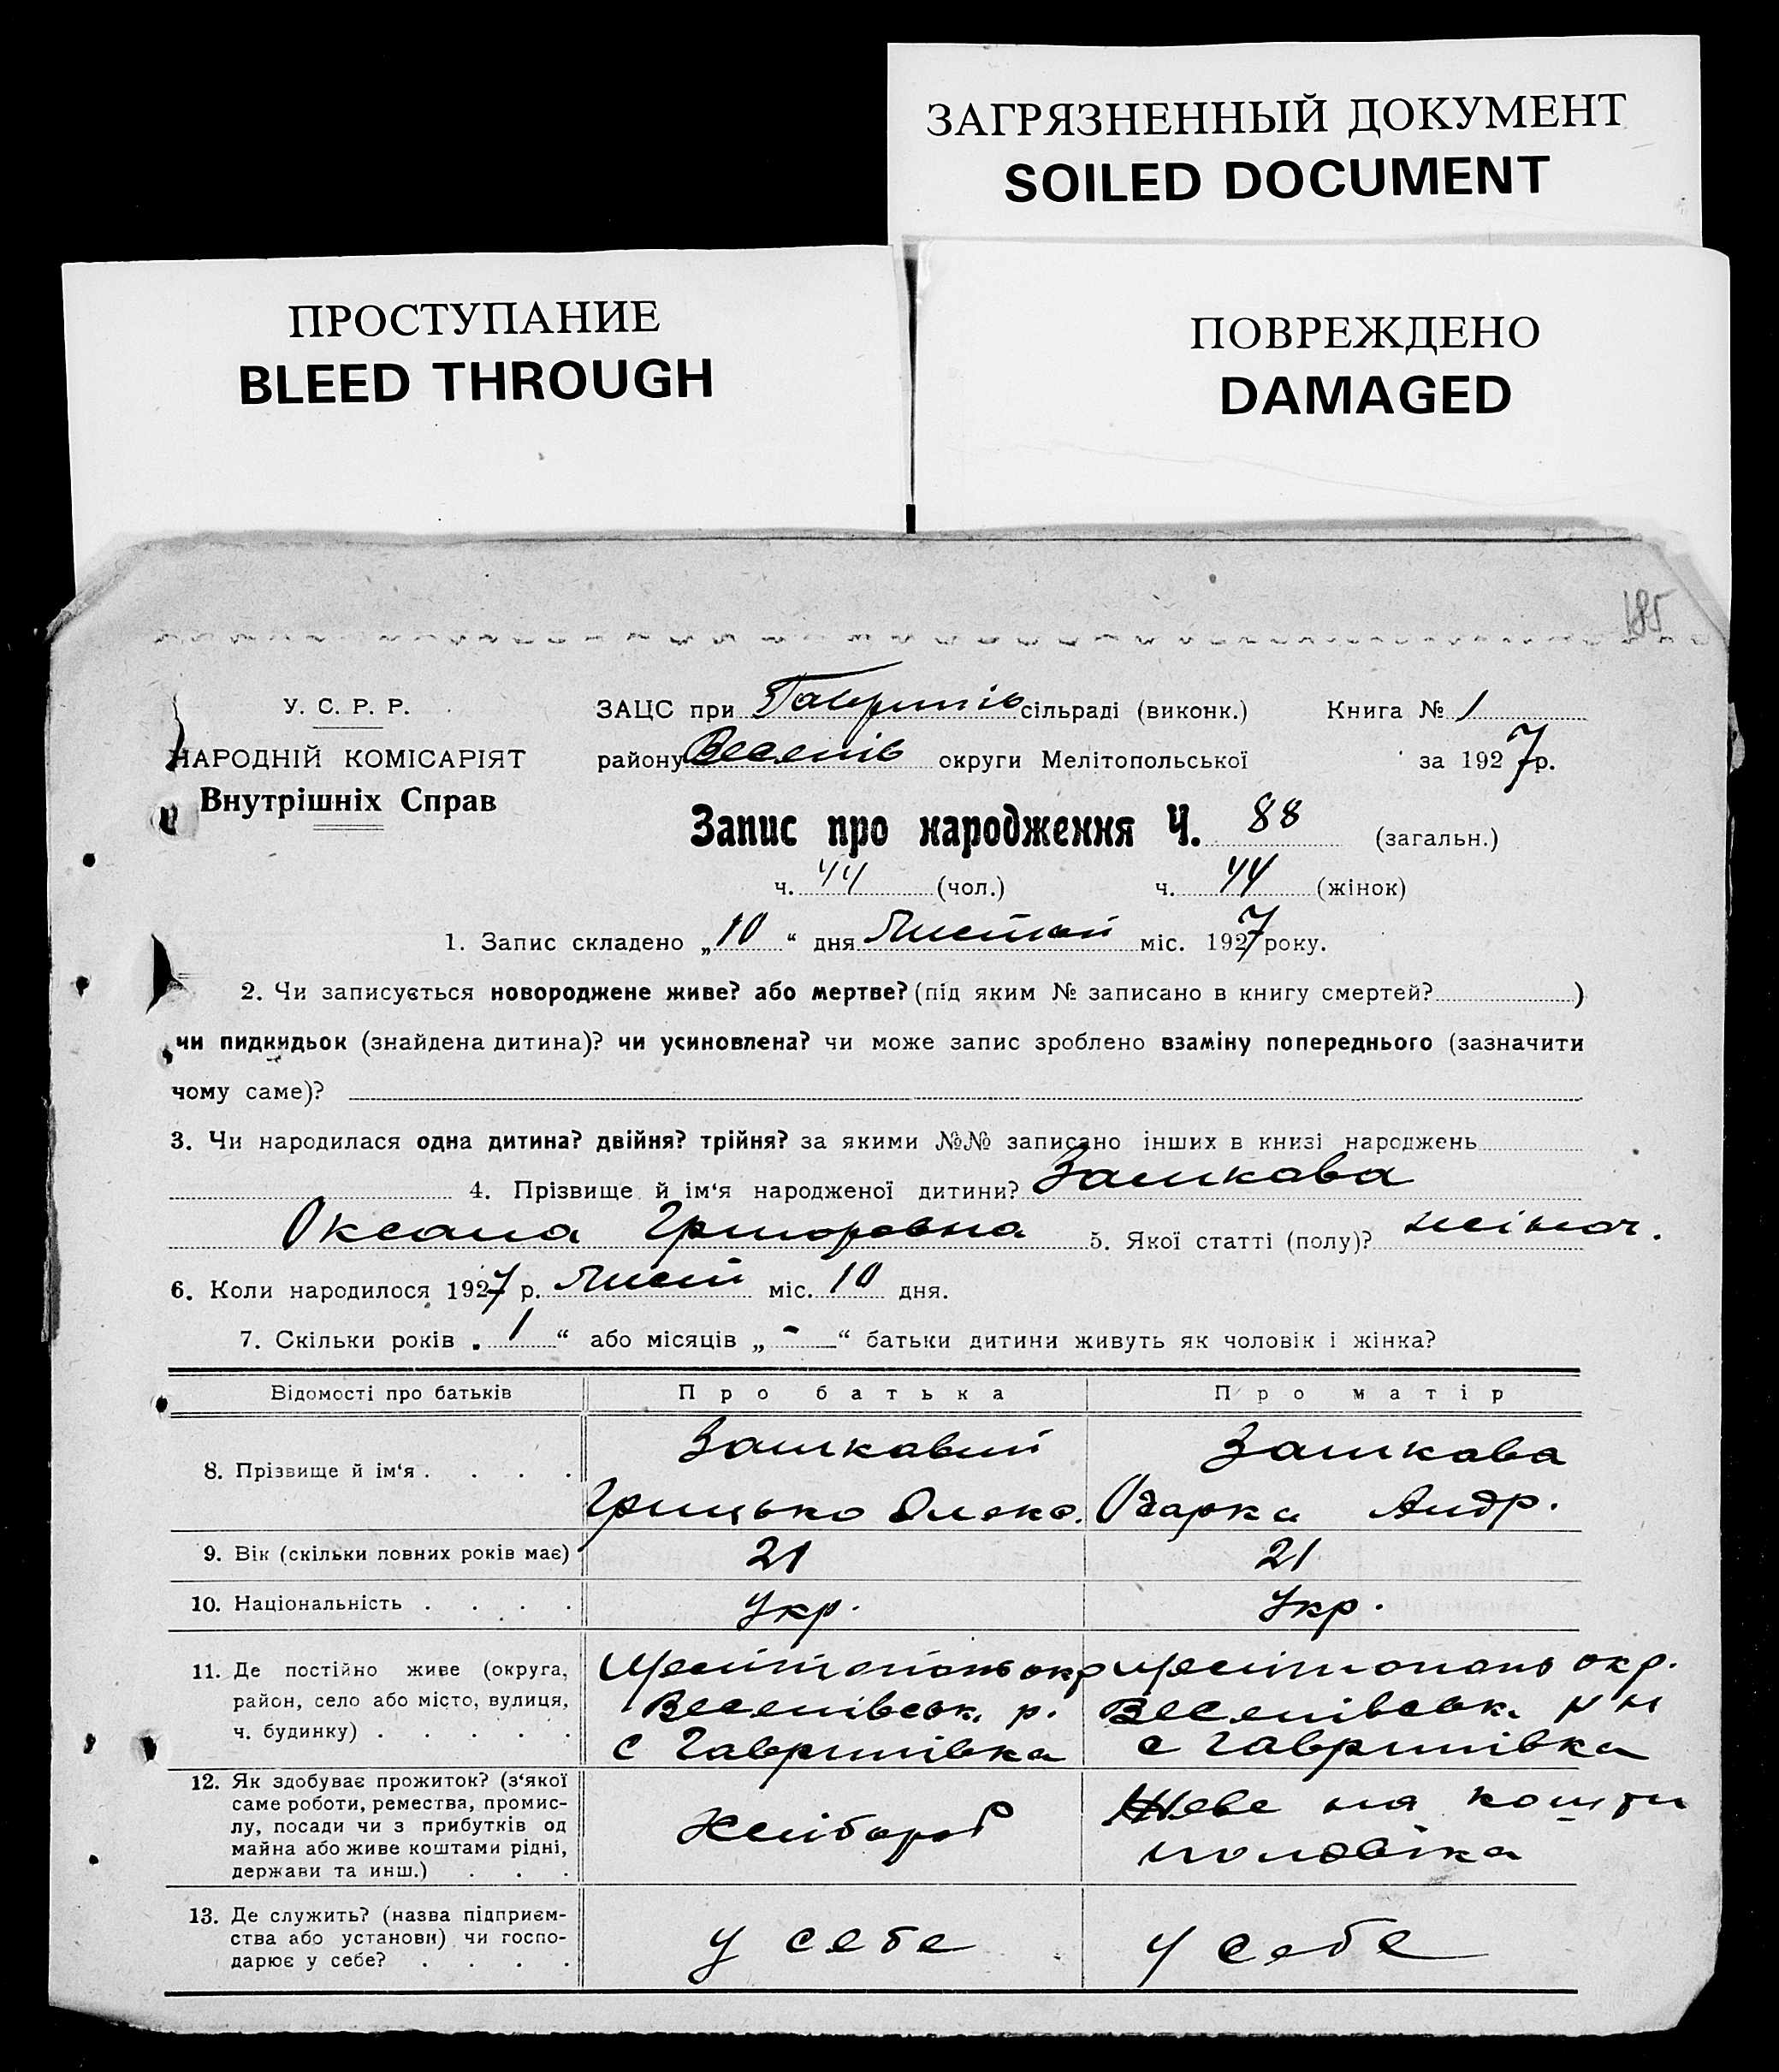 ЗАГРЯЗНЕННЫЙ ДОКУМЕНТ
SOILED DOCUMENT
ПРОСТУПАНИЕ
BLEED THROUGH
ПОВРЕЖДЕНО
DAMAGED
185
У. С. Р. Р.
НАРОДНІЙ КОМІСАРІЯТ
Внутрішніх Справ
ЗАЦС при Гаврилів сільраді (виконк.) Книга № 1
району Веселів округи Мелітопольської за 1927 р.
Запис про народження Ч. 88 (загальн.)
ч. 44 (чол.) ч. 44 (жінок)
1. Запис складено „10“ дня міс. 1927 року.
2. Чи записується новороджене живе? або мертве? (під яким № записано в книгу смертей? )
чи пидкидьок (знайдена дитина)? чи усиновлена? чи може запис зроблено взаміну попереднього (зазначити
чому саме)?
3. Чи народилася одна дитина? двійня? трійня? за якими №№ записано інших в книзі народжень
4. Прізвище й ім‘я народженої дитини? Зашкава
Оксана Григоровна 5. Якої статті (полу)? жіноч.
6. Коли народилося 1927 р. Лист міс. 10 дня.
7. Скільки років „1“ або місяців „-“ батьки дитини живуть як чоловік і жінка?
Відомості про батьків Про батька Про матір
8. Прізвище й ім‘я . . . . Зашкавий Зашкава
Грицько Олекс. Одарка Андр.
9. Вік (скільки повних років має) 21 21
10. Національність . . . . Укр. Укр.
11. Де постійно живе (округа, Мелітополь окр Мелітополь окр.
район, село або місто, вулиця, Веселівськ. р. Веселівськ.
ч. будинку) . . . . . с Гаврилівка с Гаврилівка
12. Як здобуває прожиток? (з‘якої
саме роботи, ремества, промис-
лу, посади чи з прибутків од
майна або живе коштами рідні,
держави та инш.) . . . Хлібороб Живе на кошти
чоловіка
13. Де служить? (назва підприєм-
ства або установи) чи госпо-
дарює у себе? . . . . у себе у себе